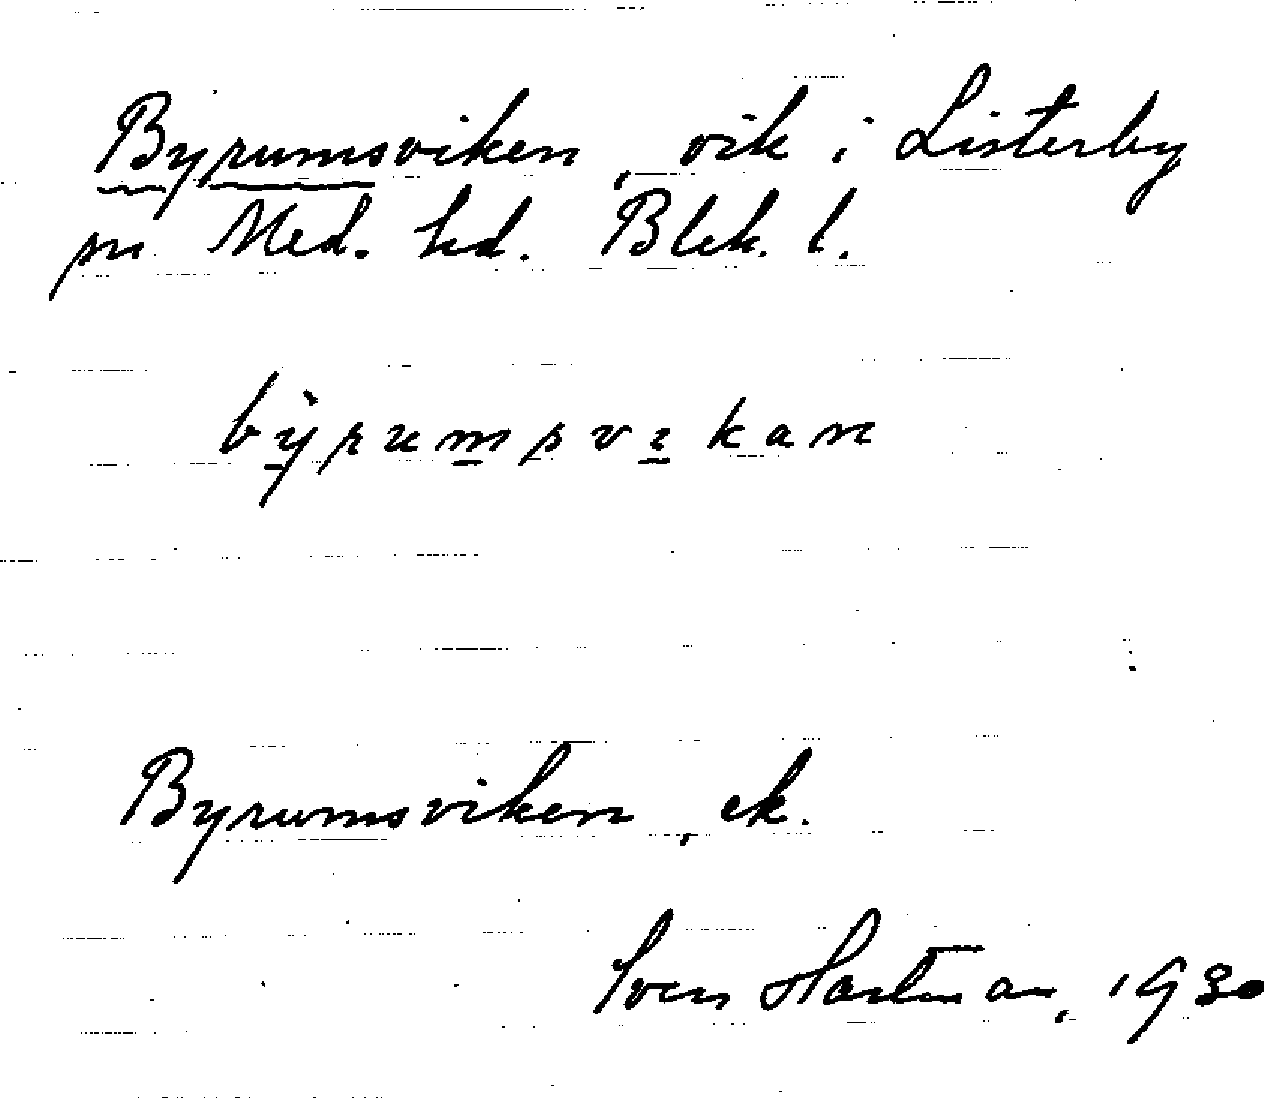 Byrumsviken, vik i Listerby
sn Med. hd. Blek. l.
bỳrumsvıkan
Byrumsviken, ek.
Sven Hartman, 1930